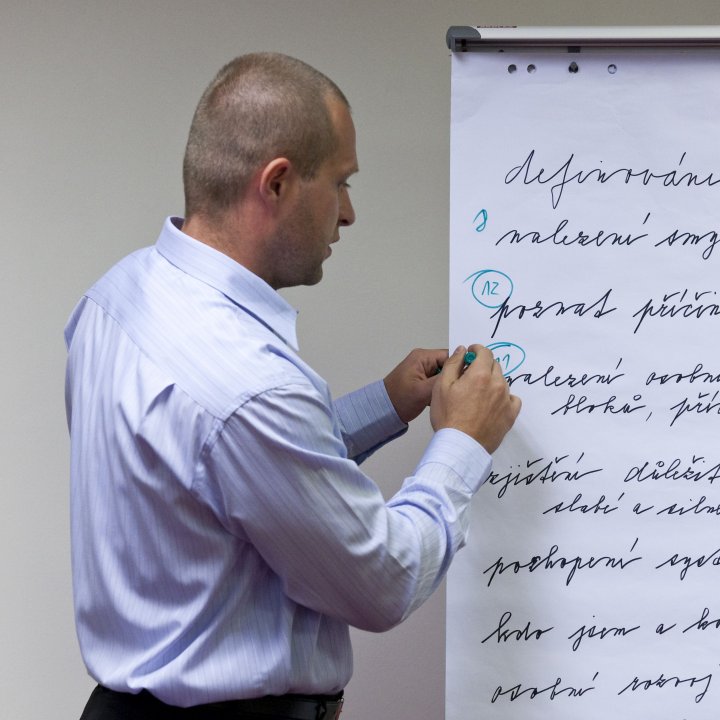 definování
8 nalezení smy
12 poznat příčin
11 nalezení osobn
bloků, příč
zjištění důležit
slabé a siln
pochopení sys
kdo jsem a k
osobní rozvoj